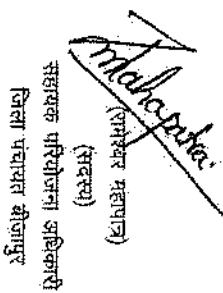 Mahapatra
(रामेश्वर महापात्र)
(सदस्य)
सहायक परियोजना अधिकारी
जिला पंचायत बीजापुर